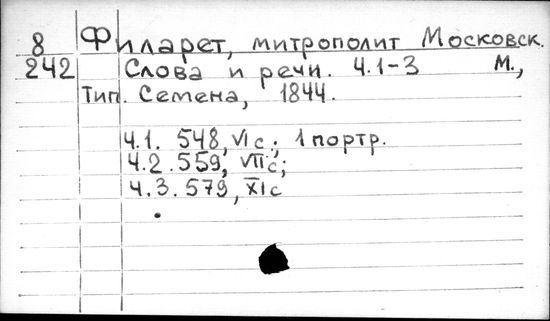 8 Филарет, митрополит Московск.
242 Слова и речи. Ч.1-3 М.,
Тип. Семена, 1844.
Ч.1. 548, VI с.; 1 портр.
Ч.2. 559, VII с;
Ч.3. 579, XI с